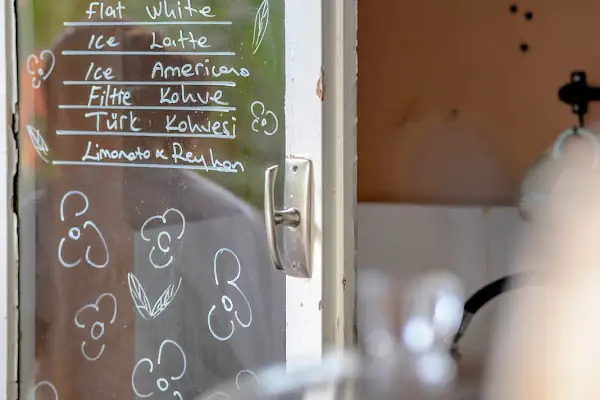 flat White
Ice Latte
Ice Americano
Filtre Kahve
Türk Kahvesi
Limonata x Reyhan